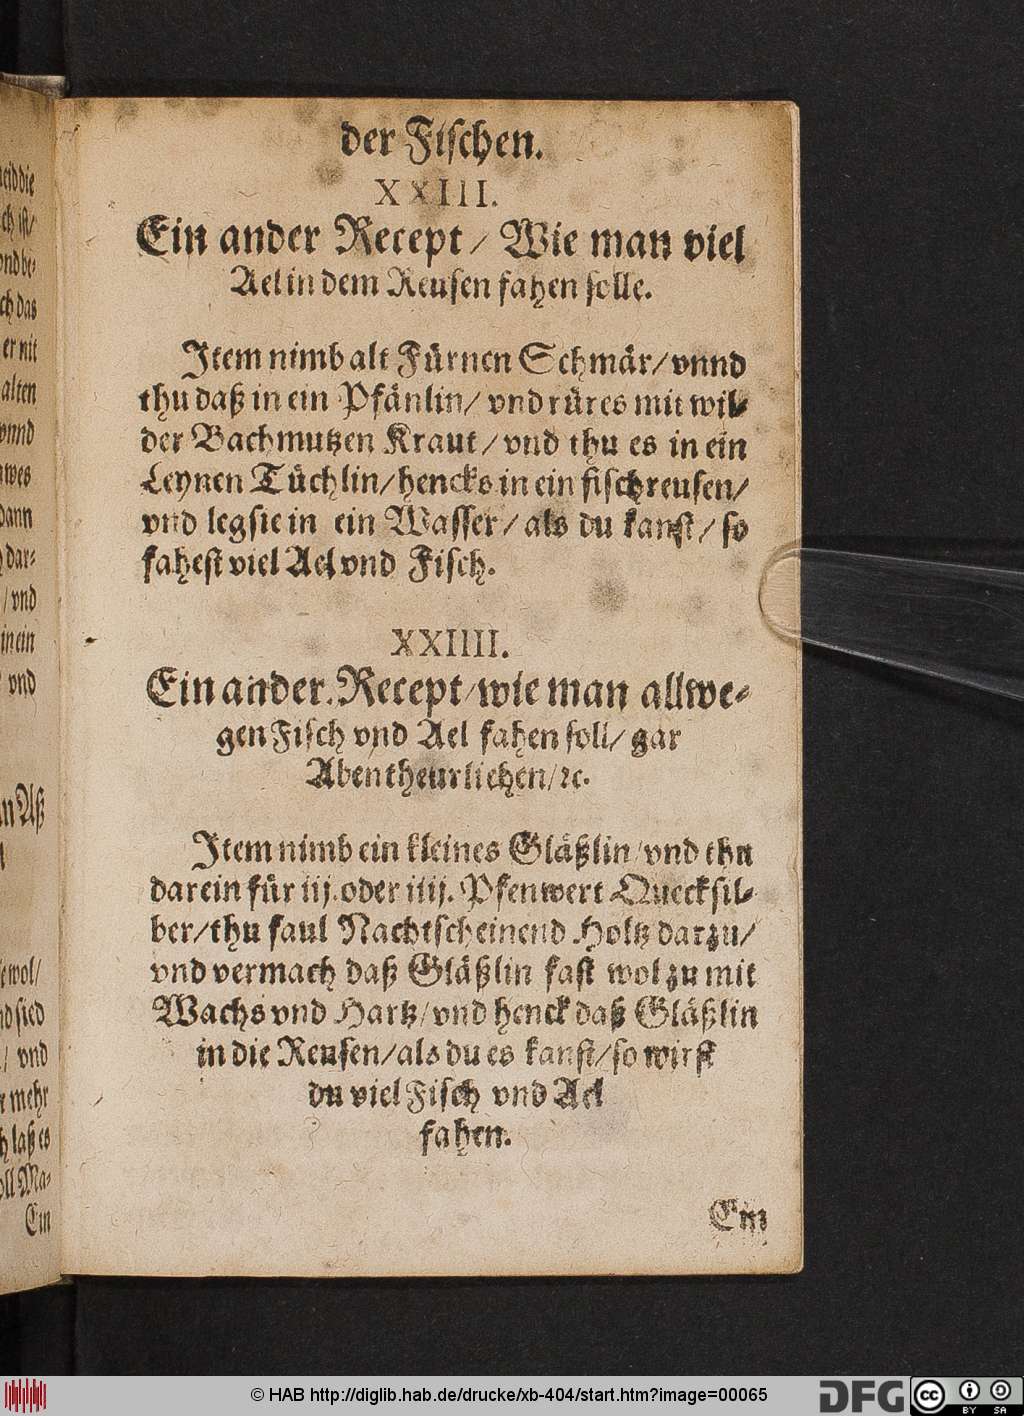 der Fischen.
XXIII.
Ein ander Recept / Wie man viel
Ael in dem Reusen fahen solle.
Item nimb alt Fürnen Schmär / vnnd
thu daß in ein Pfänlin / vnd rüres mit wil-
der Bachmutzen Kraut / vnd thu es in ein
Leynen Tüchlin / hencks in ein fischreusen /
vnd leg sie in ein Wasser / als du kanst / so
fahest viel Ael vnd Fisch.
XXIIII.
Ein ander Recept / wie man allwe-
gen Fisch vnd Ael fahen soll / gar
Abentheurlichen / ꝛc.
Item nimb ein kleines Gläßlin / vnd thu
darein für iij. oder iiij. Pfenwert Quecksil-
ber / thu faul Nachtscheinend Holtz darzu /
vnd vermach daß Gläßlin fast wol zu mit
Wachs vnd Hartz / vnd henck daß Gläßlin
in die Reusen / als du es kanst / so wirst
du viel Fisch vnd Ael
fahen.
Ein
die
ist /
vnd be-
das
er nit
alten
vnnd
dann
dar-
/ vnd
in ein
vnd
Aß
wol /
sied
/ vnd
mehr
laß es
Ma-
Ein
© HAB http://diglib.hab.de/drucke/xb-404/start.htm?image=00065
DFG
cc BY SA